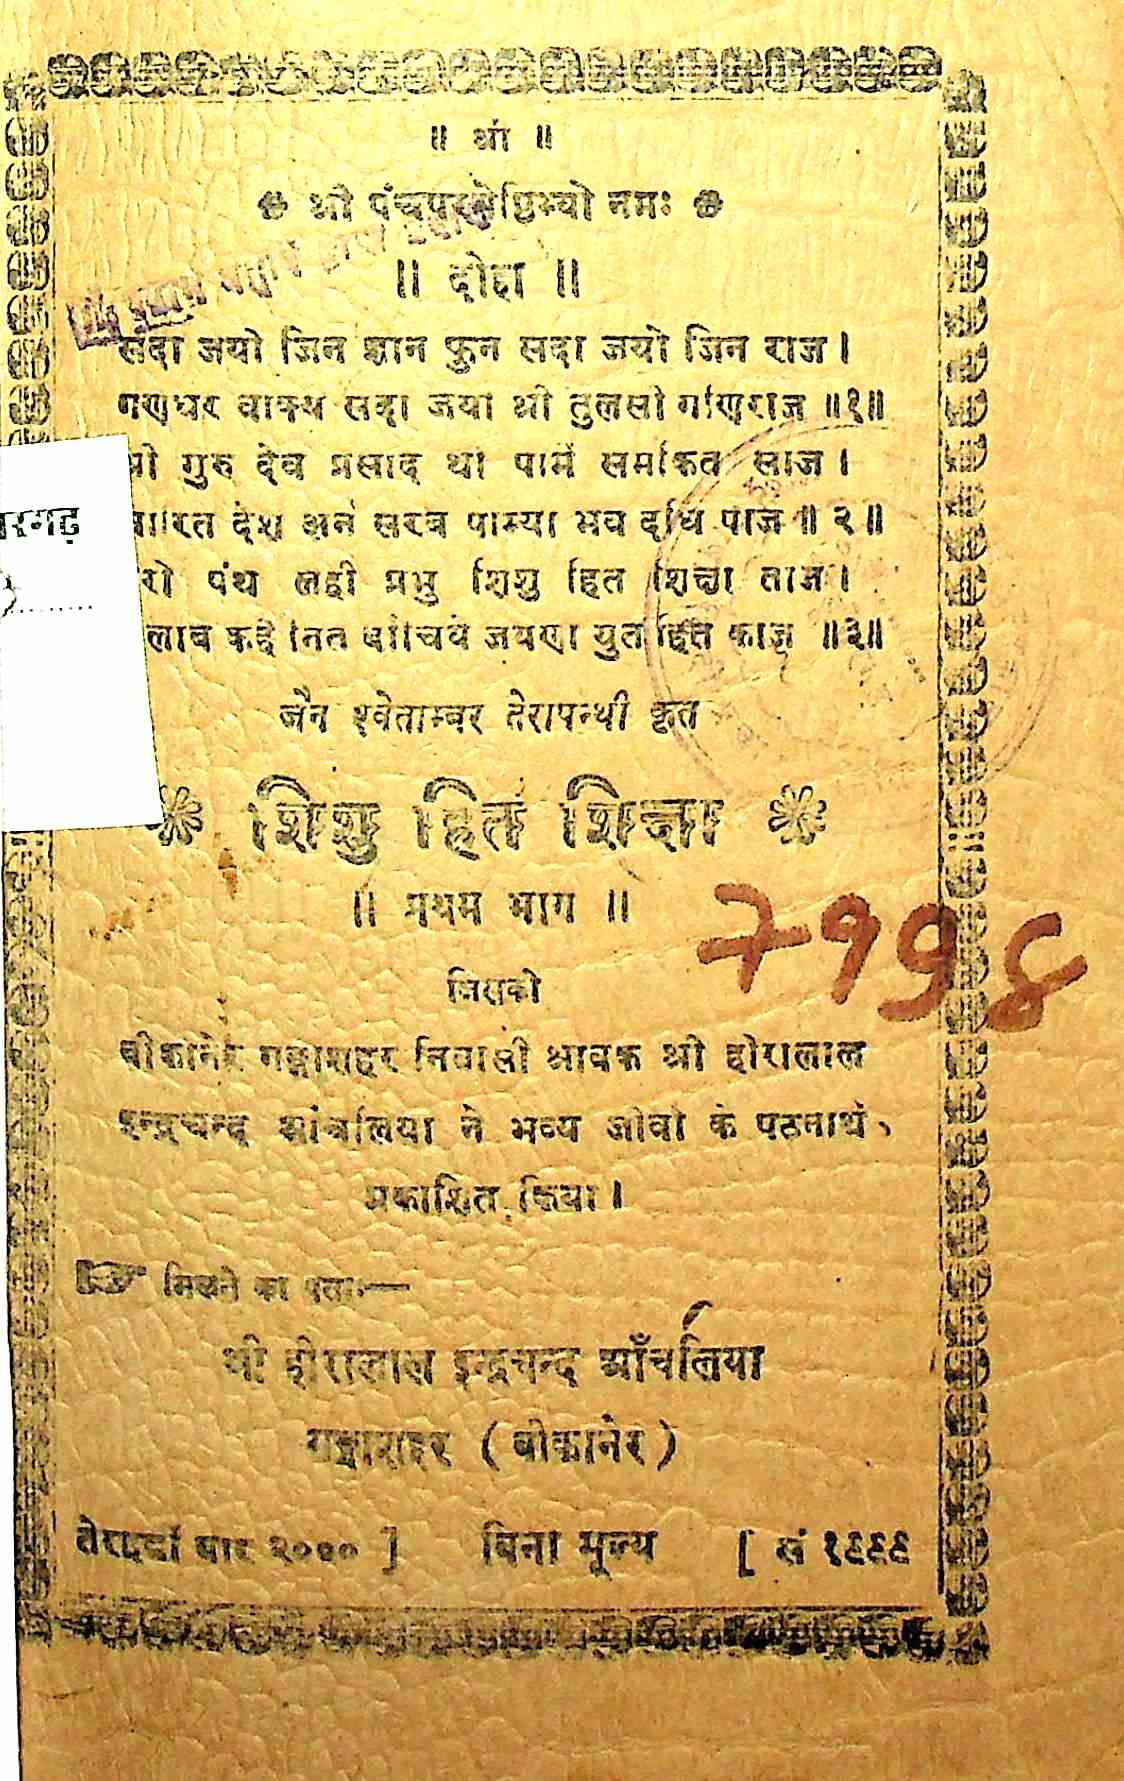 ॥ श्री ॥
श्री पंचपरमेष्ठिभ्यो नमः
॥ दोहा ॥
सदा जयो जिन ज्ञान फुन सदा जयो जिन राज ।
गणधर वाक्य सदा जयो श्री तुलसी गणिराज ॥१॥
श्री गुरु देव प्रसाद थी पामें समकित साज ।
देश अने सरव पाम्या भव दधि पाज ॥ २ ॥
पंथ लही प्रभु शिशु हित शिक्षा ताज ।
कहे नित बांचिये जयणा युत हित काज ॥३॥
रगढ़
जैन श्वेताम्बर तेरापन्थी कृत
शिशु हित शिक्षा
॥ प्रथम भाग ॥
७११४
जिसको
बीकानेर गङ्गाशहर निवासी श्रावक श्री हीरालाल
इन्द्रचन्द आंचलिया ने भव्य जीवों के पठनार्थ
प्रकाशित किया ।
मिलने का पताः—
श्री हीरालाल इन्द्रचन्द आँचलिया
गङ्गाशहर ( बीकानेर )
तेरहवीं बार २००० ] बिना मूल्य [ सं १९९९